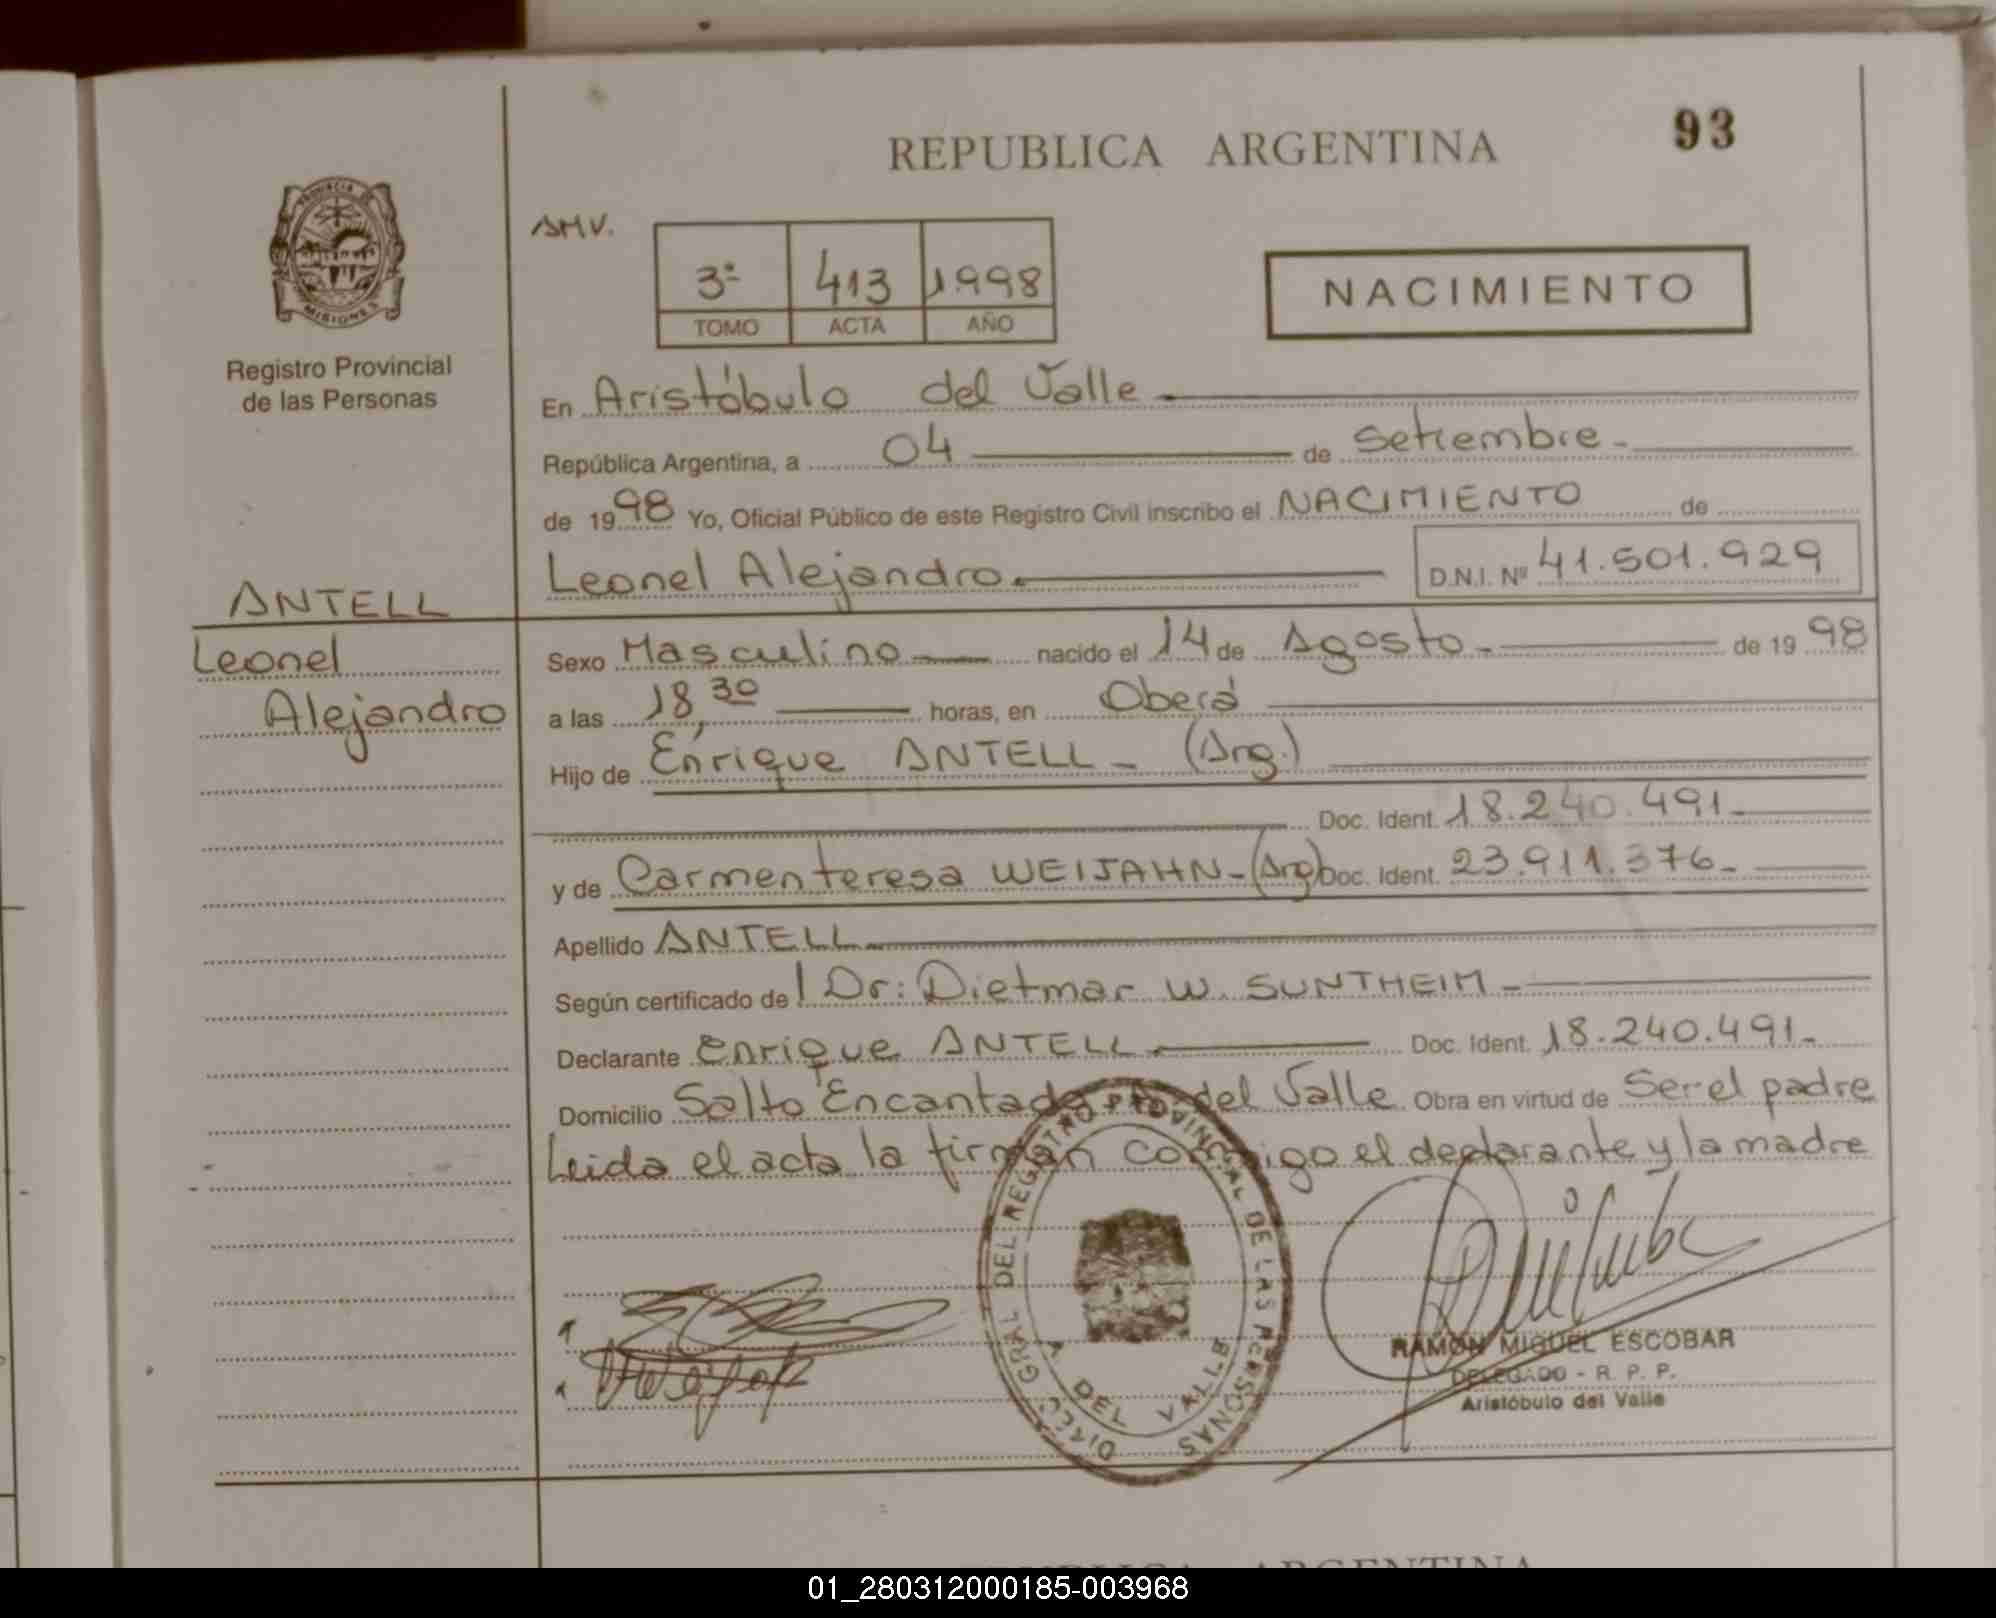 REPUBLICA ARGENTINA
93
PROVINCIA DE
MISIONES
Registro Provincial
de las Personas
AMV.
3º 413 1998
TOMO ACTA AÑO
NACIMIENTO
En Aristóbulo del Valle
República Argentina, a 04 de Setiembre
de 1998 Yo, Oficial Público de este Registro Civil inscribo el NACIMIENTO de
Leonel Alejandro. D.N.I. Nº 41.501.929
ANTELL
Leonel
Alejandro
Sexo Masculino nacido el 14 de Agosto de 1998
a las 18,30 horas, en Oberá
Hijo de Enrique ANTELL (Arg.)
Doc. Ident. 18.240.491
y de Carmenteresa WEIJAHN (Arg) Doc. Ident. 23.911.376
Apellido ANTELL
Según certificado del Dr: Dietmar W. SUNTHEIM
Declarante Enrique ANTELL Doc. Ident. 18.240.491
Domicilio Salto Encantado A. del Valle Obra en virtud de Ser el padre
Leida el acta la firman conmigo el declarante y la madre
DIREC. GRAL DEL REGISTRO PROVINCIAL DE LAS PERSONAS
A DEL VALLE
RAMON MIGUEL ESCOBAR
DELEGADO - R. P. P.
Aristóbulo del Valle
ARGENTINA
01_280312000185-003968